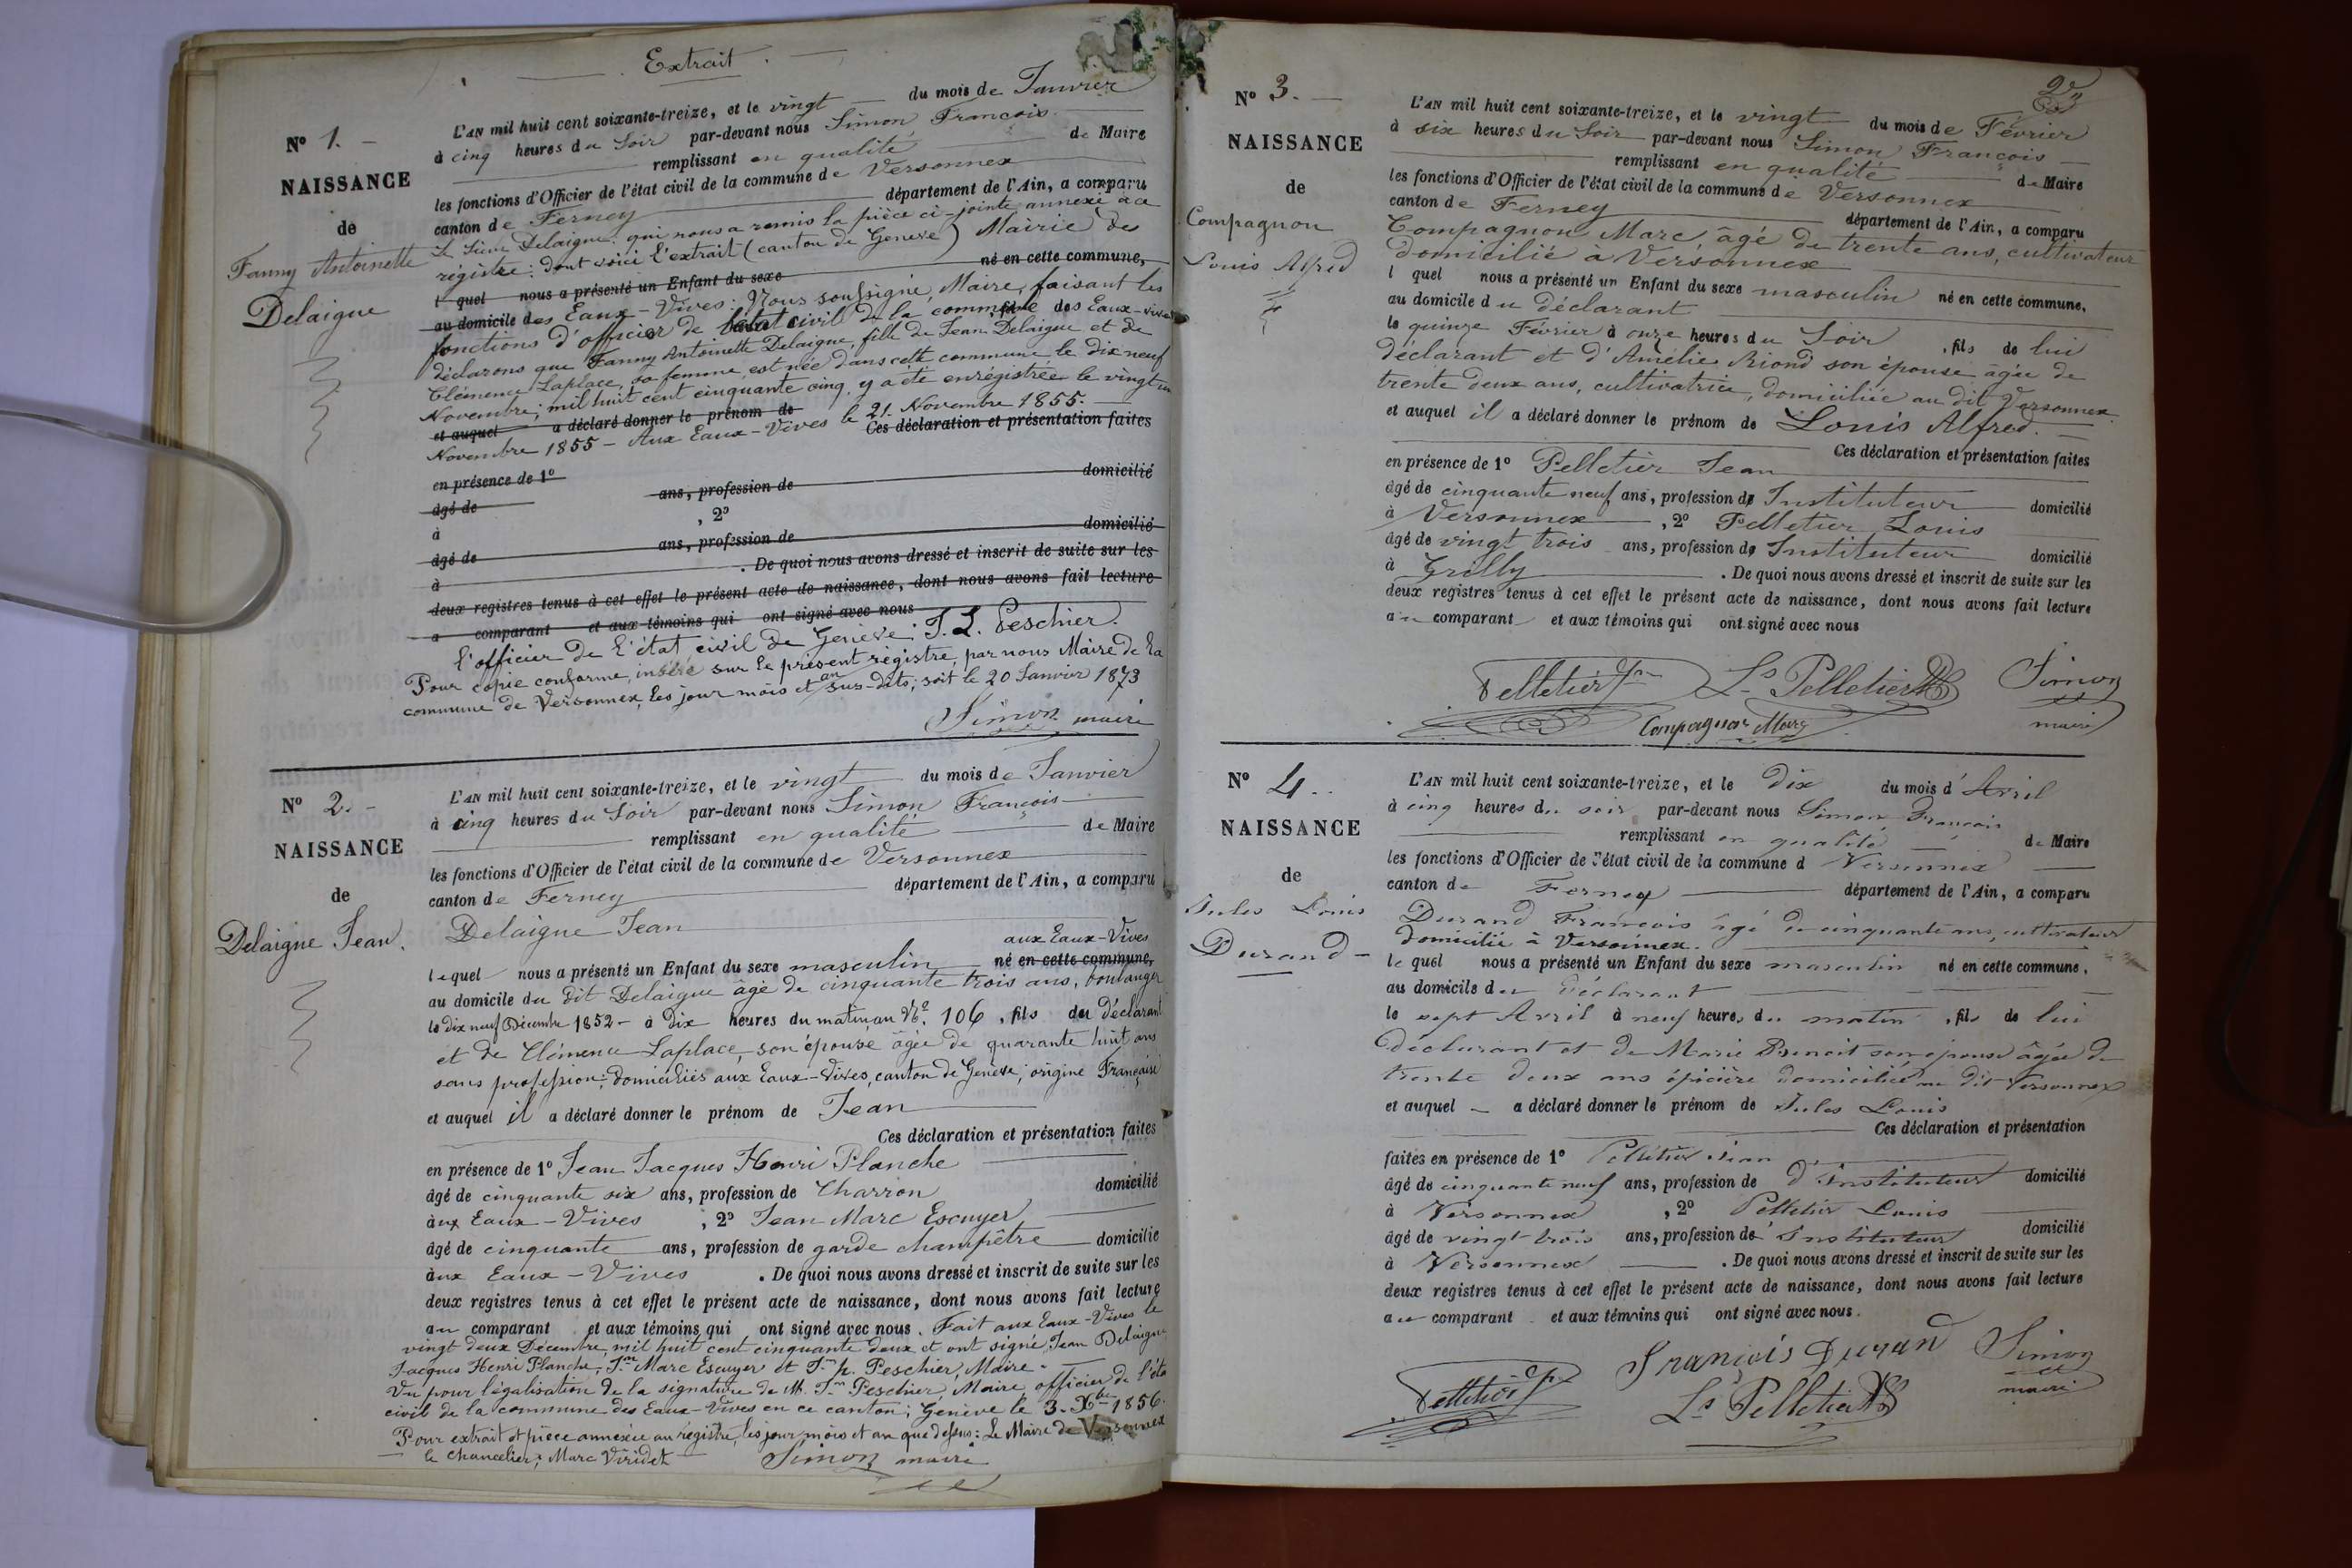 Extrait
N° 1.
NAISSANCE
de
Fanny Antoinette
Delaigue
L'AN mil huit cent soixante-treize, et le vingt du mois de Janvier
à cinq heures du Soir par-devant nous Simon François
remplissant en qualité de Maire
les fonctions d'Officier de l'état civil de la commune de Versonnex
canton de Ferney département de l'Ain, a comparu
le Sieur Delaigue qui nous a remis la pièce ci-jointe annexé à ce
régistre: dont voici l'extrait (canton de Genève) Mairie des
l quel nous a présenté un Enfant du sexe né en cette commune,
au domicile des Eaux-Vives: Nous soussigné, Maire, faisant les
fonctions d'officier de l'état civil de la commune des Eaux-vives
déclarons que Fanny Antoinette Delaigue, fille de Jean Delaigue et de
Clémence Laplace, sa femme, est née dans cette commune le dix neuf
Novembre, mil huit cent cinquante cinq, y a été enrégistrée le vingt un
et auquel a déclaré donner le prénom de
Novembre 1855 - Aux Eaux-Vives le 21. Novembre 1855.
Ces déclaration et présentation faites
en présence de 1° domicilié
âgé de ans, profession de
à , 2°
âgé de ans, profession de domicilié
à . De quoi nous avons dressé et inscrit de suite sur les
deux registres tenus à cet effet le présent acte de naissance, dont nous avons fait lecture
a comparant et aux témoins qui ont signé avec nous
l'officier de l'état civil de Genève: J. L. Peschier.
Pour copie conforme, inséré sur le présent régistre, par nous Maire de la
commune de Versonnex, les jour mois et an sus-dits; soit le 20 Janvier 1873
Simon maire
N° 2.
NAISSANCE
de
Delaigue Jean.
L'AN mil huit cent soixante-treize, et le vingt du mois de Janvier
à cinq heures du Soir par-devant nous Simon François
remplissant en qualité de Maire
les fonctions d'Officier de l'état civil de la commune de Versonnex
canton de Ferney département de l'Ain, a comparu
Delaigue Jean
aux Eaux-Vives
lequel nous a présenté un Enfant du sexe masculin né en cette commune,
au domicile du dit Delaigue âgé de cinquante trois ans, boulanger
le dix neuf Décembre 1852 - à dix heures du matin, au N° 106, fils du déclarant
et de Clémence Laplace, son épouse âgée de quarante huit ans
sans profession; domiciliés aux Eaux-Vives, canton de Genève; origine Française
et auquel il a déclaré donner le prénom de Jean
Ces déclaration et présentation faites
en présence de 1° Jean Jacques Henri Planche
âgé de cinquante six ans, profession de Charron domicilié
àux Eaux-Vives , 2° Jean Marc Escuyer
âgé de cinquante ans, profession de garde champêtre domicilié
àux Eaux-Vives . De quoi nous avons dressé et inscrit de suite sur les
deux registres tenus à cet effet le présent acte de naissance, dont nous avons fait lecture
au comparant et aux témoins qui ont signé avec nous. Fait aux Eaux-Vives le
vingt deux Décembre, mil huit cent cinquante deux et ont signé, Jean Delaigue
Jacques Henri Planche, Jn Marc Escuyer et Jn h. Peschier, Maire.
Vu pour légalisation de la signature de M. Jn Peschier, Maire officier de l'éta
civil de la commune des Eaux-Vives en ce canton; Genève le 3. Xbre 1856.
Pour extrait et pièce annexée au régistre, les jour mois et an que dessus: Le Maire de Versonnex
le Chancelier; Marc Viridet
Simon maire
N° 3.
NAISSANCE
de
Compagnon
Louis Alfred
L'AN mil huit cent soixante-treize, et le vingt du mois de Février
à six heures du Soir par-devant nous Simon François
remplissant en qualité de Maire
les fonctions d'Officier de l'état civil de la commune de Versonnex
canton de Ferney département de l'Ain, a comparu
Compagnon Marc âgé de trente ans, cultivateur
domicilié à Versonnex
l quel nous a présenté un Enfant du sexe masculin né en cette commune,
au domicile du déclarant
le quinze Février à onze heures du Soir , fils de lui
déclarant et d'Amélie Riond son épouse âgée de
trente deux ans, cultivatrice, domiciliée au dit Versonnex
et auquel il a déclaré donner le prénom de Louis Alfred.
Ces déclaration et présentation faites
en présence de 1° Pelletier Jean
âgé de cinquante neuf ans, profession de Instituteur domicilié
à Versonnex , 2° Pelletier Louis
âgé de vingt trois ans, profession de Instituteur domicilié
à Grilly . De quoi nous avons dressé et inscrit de suite sur les
deux registres tenus à cet effet le présent acte de naissance, dont nous avons fait lecture
au comparant et aux témoins qui ont signé avec nous
Pelletier Jn Ls Pelletier Simon
Compagnon Marc maire
N° 4.
NAISSANCE
de
Jules Louis
Durand
L'AN mil huit cent soixante-treize, et le dix du mois d'Avril
à cinq heures du soir par-devant nous Simon François
remplissant en qualité de Maire
les fonctions d'Officier de l'état civil de la commune d Versonnex
canton de Ferney département de l'Ain, a comparu
Durand François âgé de cinquante ans, cultivateur
domicilié à Versonnex.
le quel nous a présenté un Enfant du sexe masculin né en cette commune,
au domicile du déclarant
le sept Avril à neuf heures du matin , fils de lui
déclarant et de Marie Benoit son épouse âgée de
trente deux ans épicière domiciliée au dit Versonnex
et auquel a déclaré donner le prénom de Jules Louis
Ces déclaration et présentation
faites en présence de 1° Pelletier Jean
âgé de cinquante neuf ans, profession de d'Instituteur domicilié
à Versonnex , 2° Pelletier Louis
âgé de vingt trois ans, profession de Instituteur domicilié
à Versonnex . De quoi nous avons dressé et inscrit de suite sur les
deux registres tenus à cet effet le présent acte de naissance, dont nous avons fait lecture
au comparant et aux témoins qui ont signé avec nous.
François Durand Simon
Pelletier Jn Ls Pelletier maire